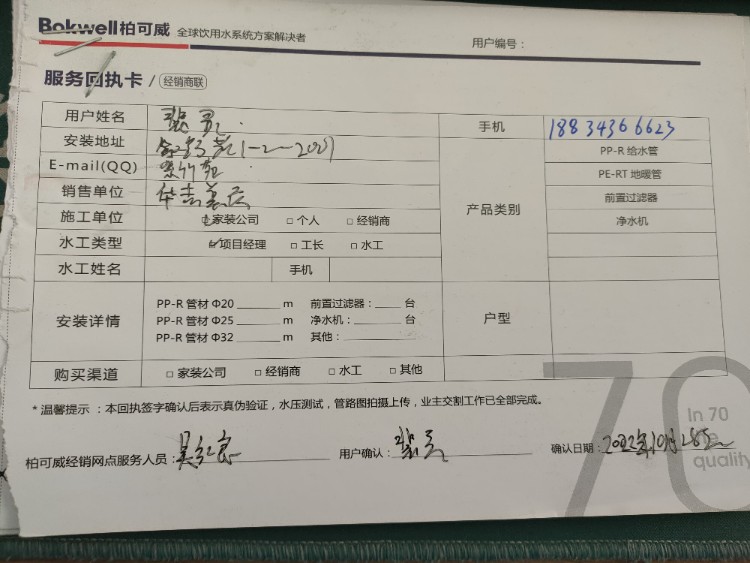 Bokwell柏可威 全球饮用水系统方案解决者 用户编号：
服务回执卡 / 经销商联
用户姓名 手机 18834366623
安装地址 1-2-2001
E-mail(QQ) 紫竹苑
销售单位 华吉美庆
施工单位 家装公司 □ 个人 □ 经销商
水工类型 项目经理 □ 工长 □ 水工
水工姓名 手机
产品类别
PP-R 给水管
PE-RT 地暖管
前置过滤器
净水机
安装详情 户型
PP-R 管材 Φ20 ______ m 前置过滤器：____ 台
PP-R 管材 Φ25 ______ m 净水机：______ 台
PP-R 管材 Φ32 ______ m 其他：______
购买渠道 □ 家装公司 □ 经销商 □ 水工 □ 其他
* 温馨提示：本回执签字确认后表示真伪验证，水压测试，管路图拍摄上传，业主交割工作已全部完成。
70
In 70
quality
柏可威经销网点服务人员： 用户确认： 确认日期：2022年10月28日